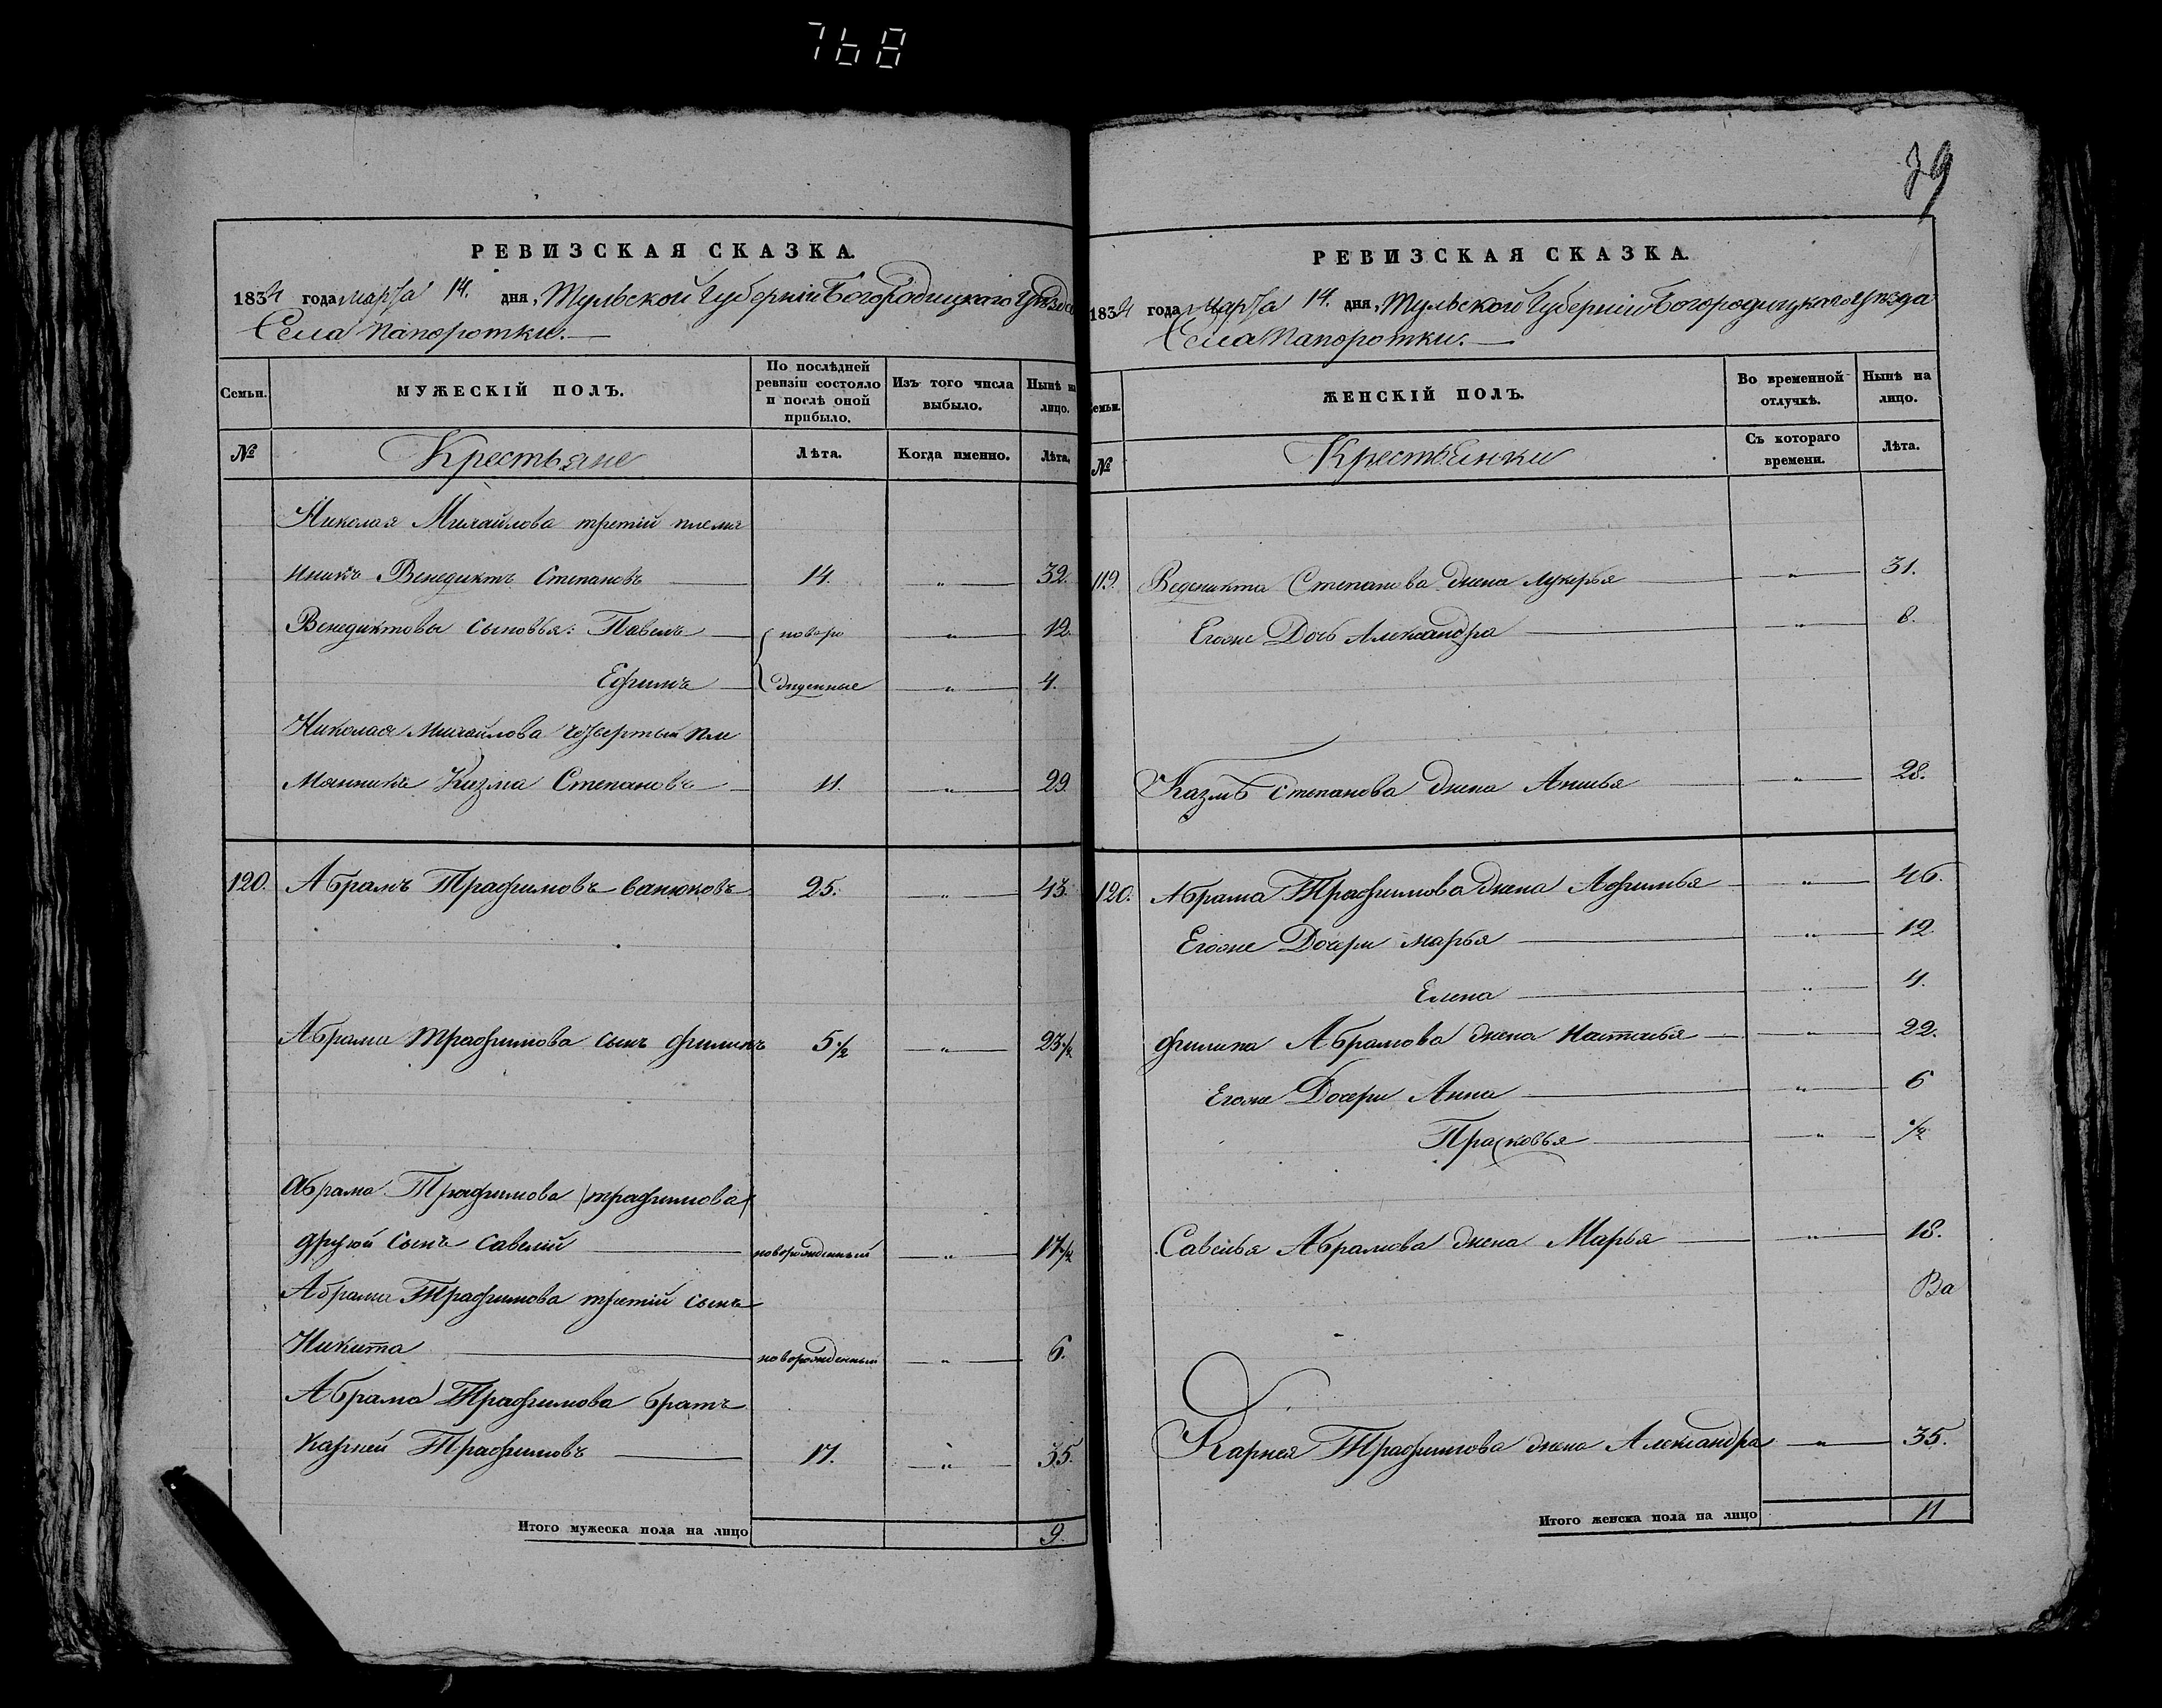 768
РЕВИЗСКАЯ СКАЗКА.
1834 года марта 14. дня, Тульской Губерніи Богородицкаго Уѣзда
Села Папоротки.
Семьи. МУЖЕСКІЙ ПОЛЪ. По послѣдней ревизіи состояло и послѣ оной прибыло. Изъ того числа выбыло. Нынѣ на лицо.
№ Крестьяне Лѣта. Когда именно. Лѣта.
Николая Михайлова третій племя
никъ Венедиктъ Степановъ 14. „ 32.
Венедиктовы сыновья: Павелъ новоро „ 12.
Ефимъ жденные „ 4.
Николая Михайлова четвертый пле
мянникъ Кузма Степановъ 11. „ 29.
120. Абрамъ Трафимовъ Ванюковъ 25. „ 43.
Абрама Трафимова сынъ Филипъ 5 1/2 „ 23 1/2
Абрама Трафимова (трафимова)
другой сынъ Савелій новорожденный „ 17 1/2
Абрама Трафимова третій сынъ
Никита новорожденный „ 6.
Абрама Трафимова братъ
Карней Трафимовъ 17. „ 35.
Итого мужеска пола на лицо 9.
39
РЕВИЗСКАЯ СКАЗКА.
1834 года Марта 14. дня, Тульской Губерніи Богородицкаго Уѣзда
Села Папоротки.
Семьи. ЖЕНСКІЙ ПОЛЪ. Во временной отлучкѣ. Нынѣ на лицо.
№ Крестьянки Съ котораго времени. Лѣта.
119. Веденикта Степанова жена Лукерья „ 31.
Егоже Дочь Александра „ 8.
Казмы Степанова жена Анисья „ 28.
120. Абрама Трафимова жена Афимья „ 46.
Егоже Дочери Марья „ 12.
Елена „ 4.
Филипа Абрамова жена Настасья „ 22.
Егоже Дочери Анна „ 6
Прасковья „ 1/2
Савелья Абрамова жена Марья „ 18.
Ва
Карнея Трафимова жена Александра „ 35.
Итого женска пола на лицо 11